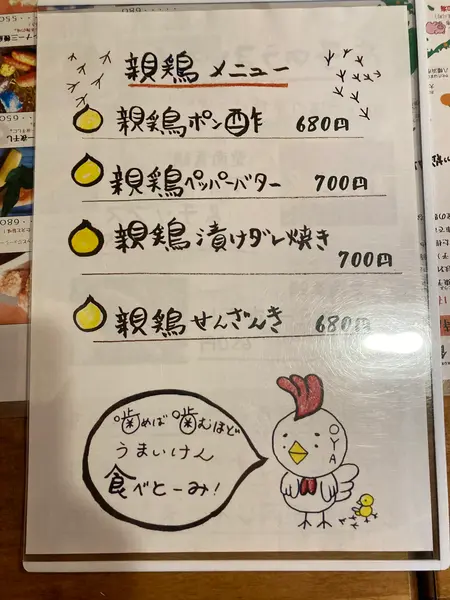 親鶏 メニュー
親鶏 ポン酢 680円
親鶏 ペッパーバター 700円
親鶏 漬けダレ焼き
700円
親鶏 せんざんき 680円
噛めば噛むほど
うまいけん
食べとーみ!
OYA